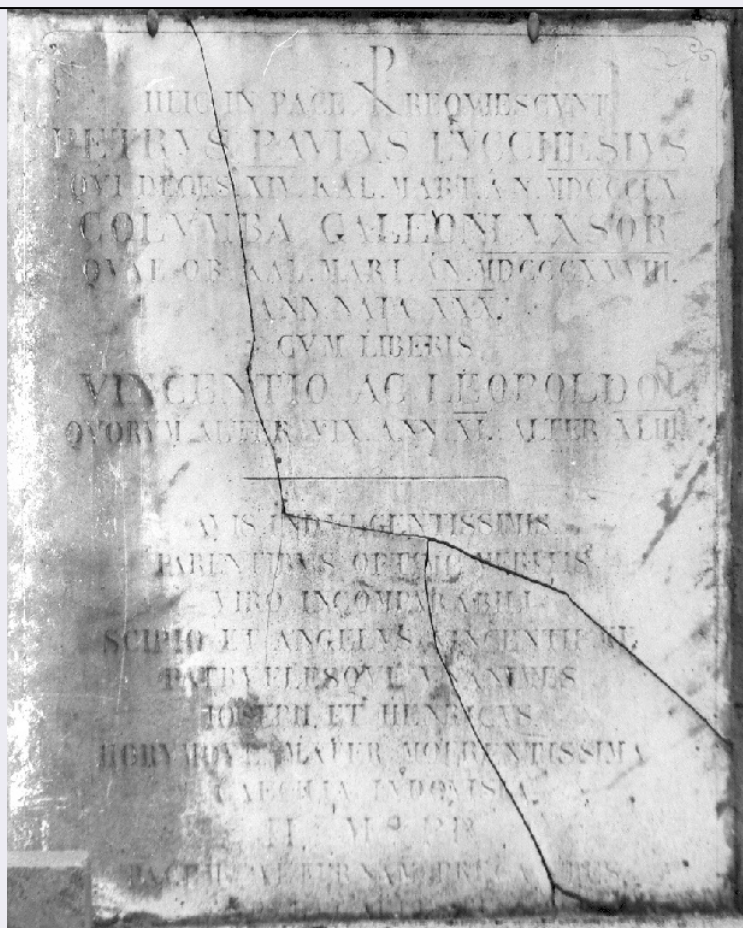 HEIC IN PACE ☧ REQVIESCVNT
PETRVS PAVLVS LVCCHESIVS
QVI DECES. XIV. KAL. MART. AN. MDCCCLX
COLVMBA GALLEONI VXSOR
QVAE OB. KAL. MART. AN. MDCCCXXVIII.
ANN. NATA XXX.
CVM LIBERIS
VINCENTIO AC LEOPOLDO
QVORVM ALTER VIX. ANN. XL. ALTER XLIII.
AVIS INDVLGENTISSIMIS
PARENTIBVS OPTIME MERITIS
VIRO INCOMPARABILI
SCIPIO ET ANGELVS VINCENTII FIL.
PATRVELESQVE VNANIMES
IOSEPH. ET HENRICVS
EORVMQVE MATER MOERENTISSIMA
CAECILIA LVDOVISIA
PACEM AETERNAM PRECANTES